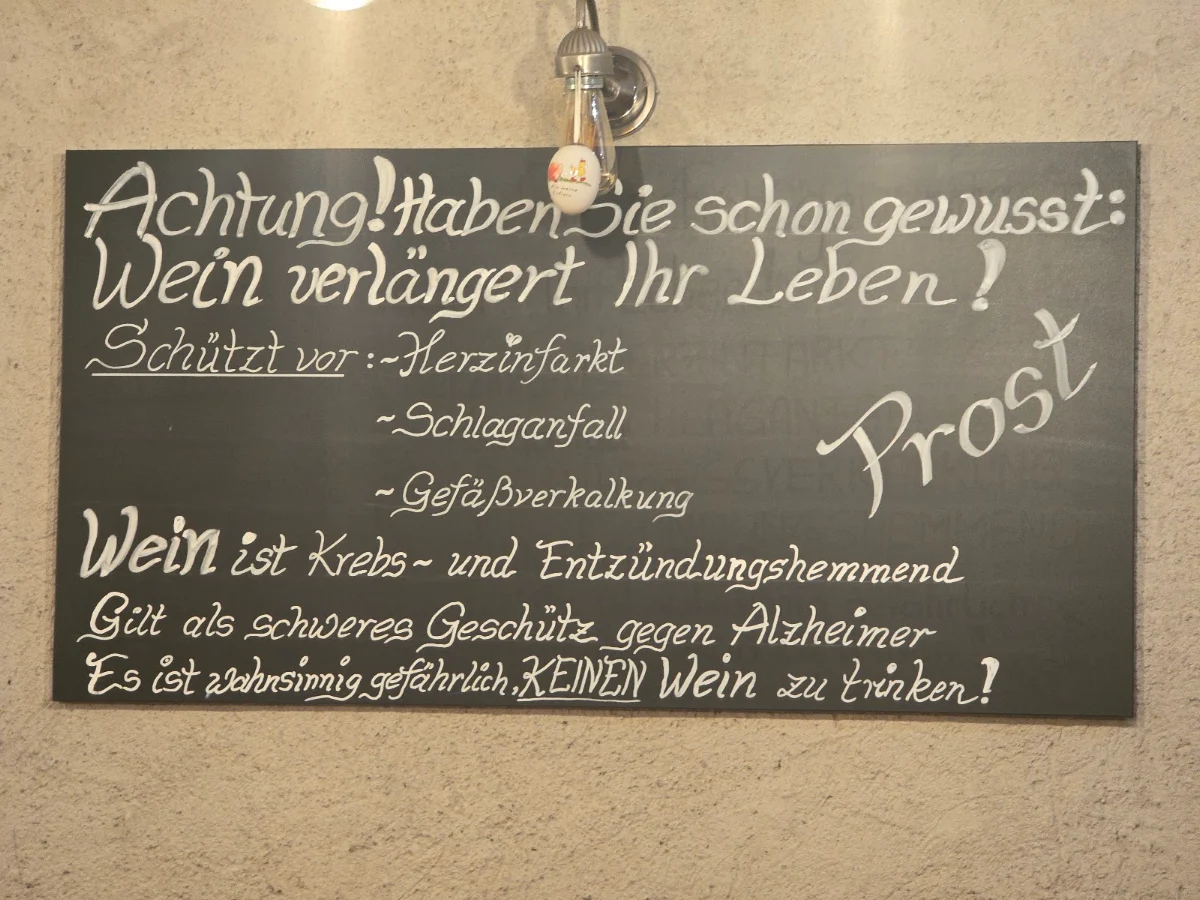 Achtung! Haben Sie schon gewusst:
Wein verlängert Ihr Leben!
Schützt vor: ~ Herzinfarkt
~ Schlaganfall
~ Gefäßverkalkung
Prost
Wein ist Krebs~ und Entzündungshemmend
Gilt als schweres Geschütz gegen Alzheimer
Es ist wahnsinnig gefährlich, KEINEN Wein zu trinken!